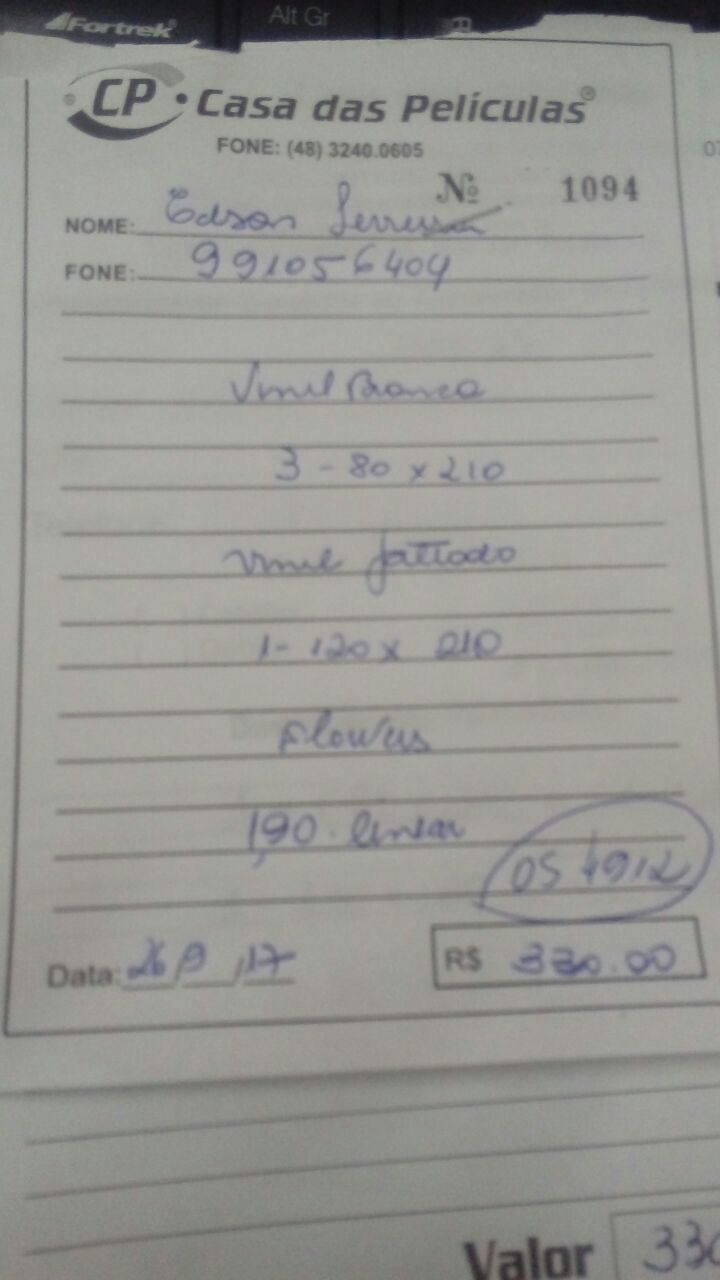 Fortrek
Alt Gr
CP Casa das Películas
FONE: (48) 3240.0605
Nº 1094
NOME: Edson
FONE: 991056404
Vinil Branco
3 - 80 x 210
Vinil Jattado
1 - 120 x 210
Flowers
1,90 linear
OS 4912
Data: 26 / 9 / 17
R$ 330.00
Valor 330